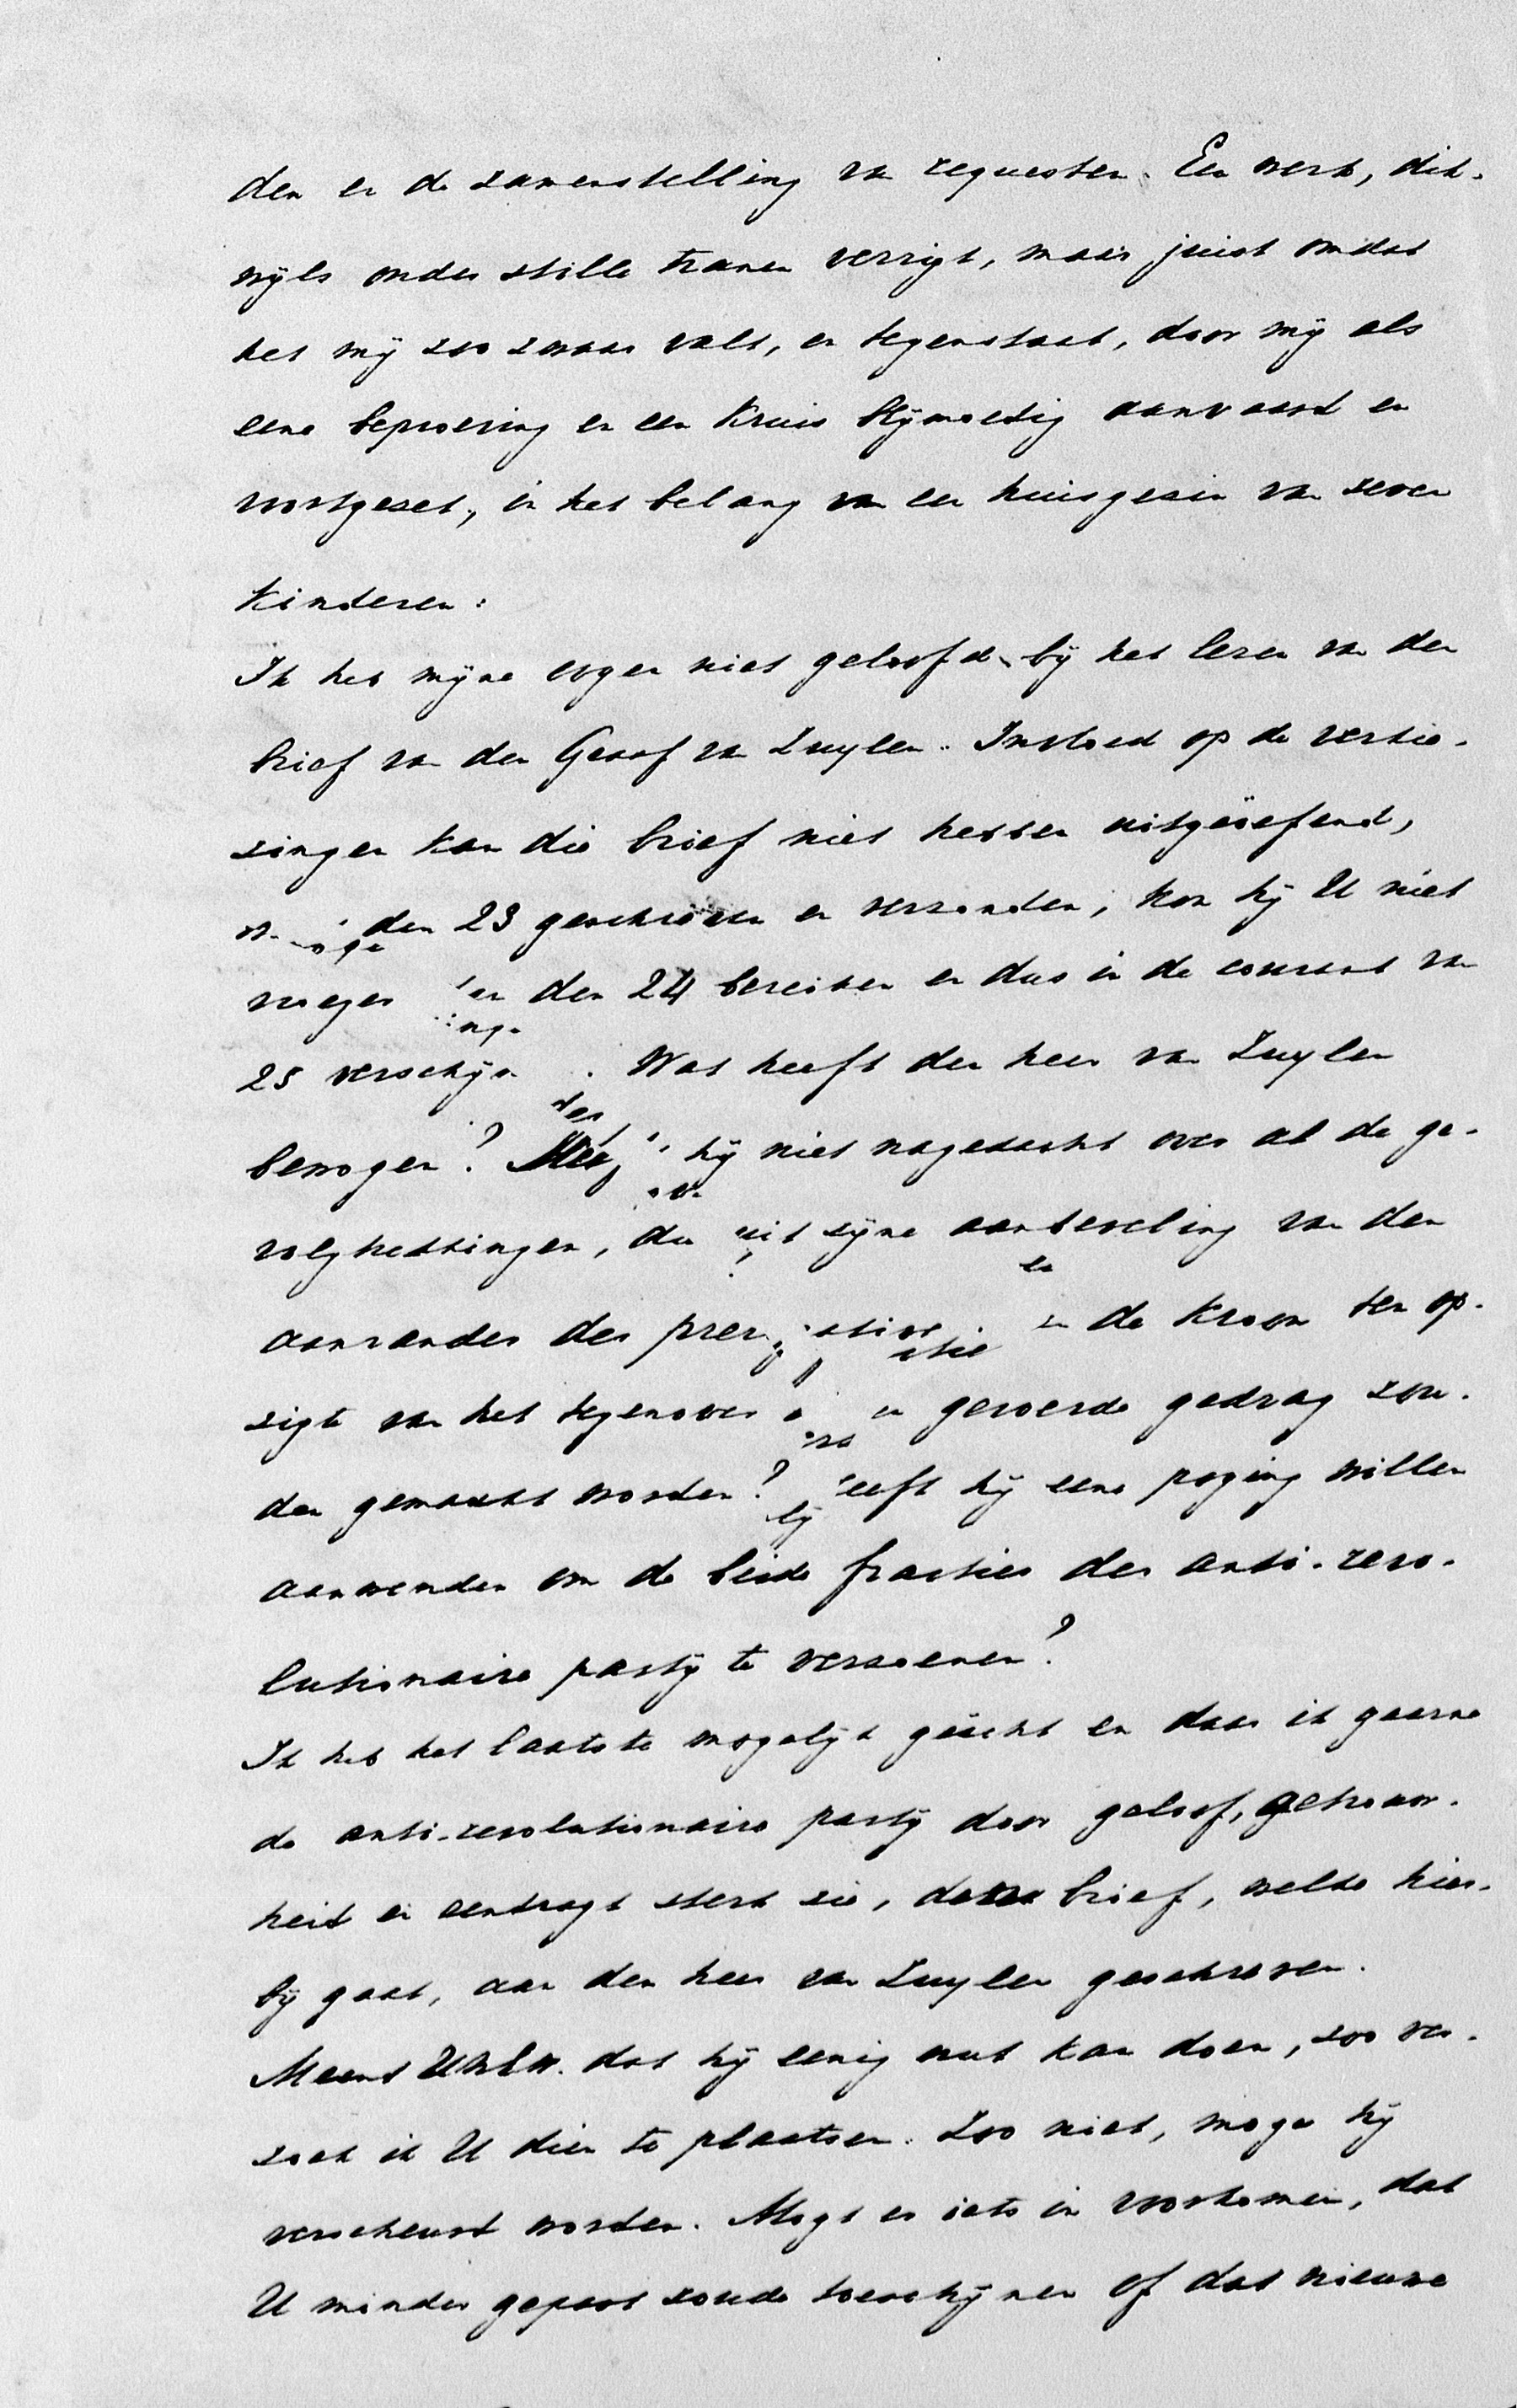 den en de zamenstelling van requesten. Een werk, dik-
wijls onder stille tranen verrigt, maar juist omdat
het mij zoo zwaar valt, en tegenstaat, door mij als
eene beproeving en een kruis blijmoedig aanvaard en
voortgezet, in het belang van een huisgezin van zeven
kinderen:
Ik heb mijne oogen niet geloofd bij het lezen van den
brief van den Graaf van Zuylen. Invloed op de verkie-
zingen kan die brief niet hebben uitgeöefend,
den 23 geschreven en verzonden, kon hij U niet
vroeger den 24 bereiken en dus in de courant van
25 verschijn . Wat heeft den heer van Zuylen
bewogen? hij niet nagedacht over al de ge-
volgtrekkingen, die uit zijne aanbeveling van den
aanrander der de Kroon ten op-
zigte van het tegenover gevoerde gedrag zou-
den gemaakt worden? eeft hij eene poging willen
aanwenden om de beide fractien der anti-revo-
lutionaire partij te verzoenen?
Ik heb het laatste mogelijk geächt en daar ik gaarne
de anti-revolutionaire partij door geloof, getrouw-
heid en eendragt sterk zie, dezen brief, welke hier-
bij gaat, aan den heer van Zuylen geschreven.
Meent UWEW. dat hij eenig nut kan doen, zoo ver-
zoek ik U dien te plaatsen. Zoo niet, moge hij
verscheurd worden. Mogt er iets in voorkomen, dat
U minder gepast zoude toeschijnen of dat nieuwe